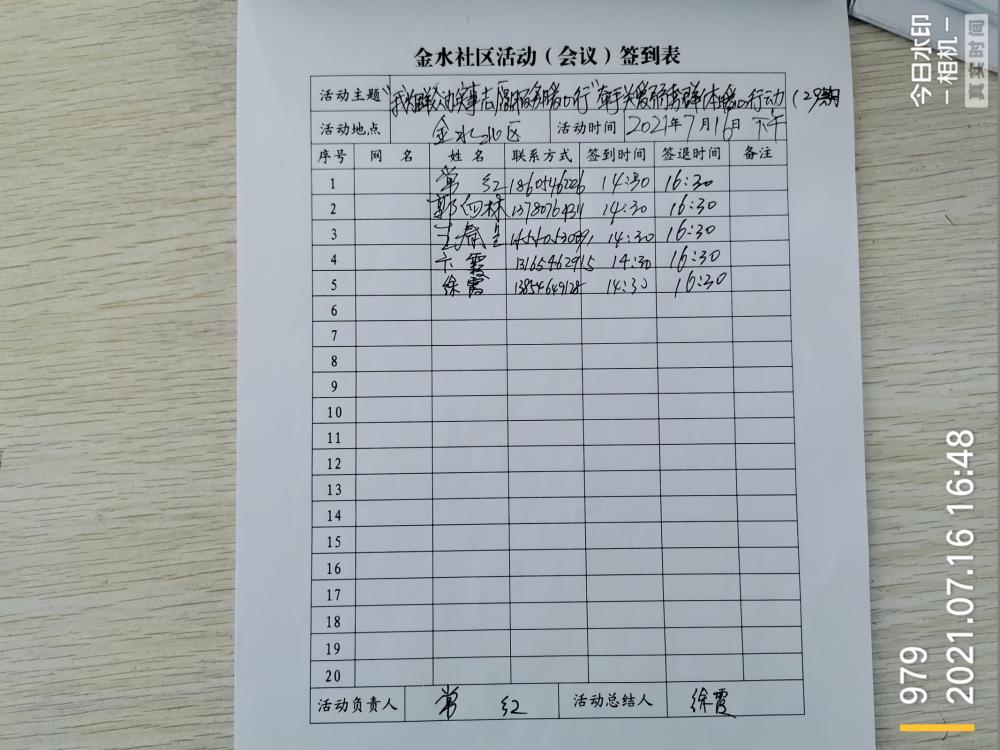 金水社区活动（会议）签到表
活动主题 "我为群众办实事志愿服务暖心行"牵手关爱 群体暖心行动（29期
活动地点 金水北区 活动时间 2021年7月16日 下午
序号 网 名 姓 名 联系方式 签到时间 签退时间 备注
1 常 红 14:30 16:30
2 14:30 16:30
3 14:30 16:30
4 卞霞 13165462915 14:30 16:30
5 徐霞 14:30 16:30
6
7
8
9
10
11
12
13
14
15
16
17
18
19
20
活动负责人 常 红 活动总结人 徐霞
今日水印
－相机－
真实时间
979
2021.07.16 16:48